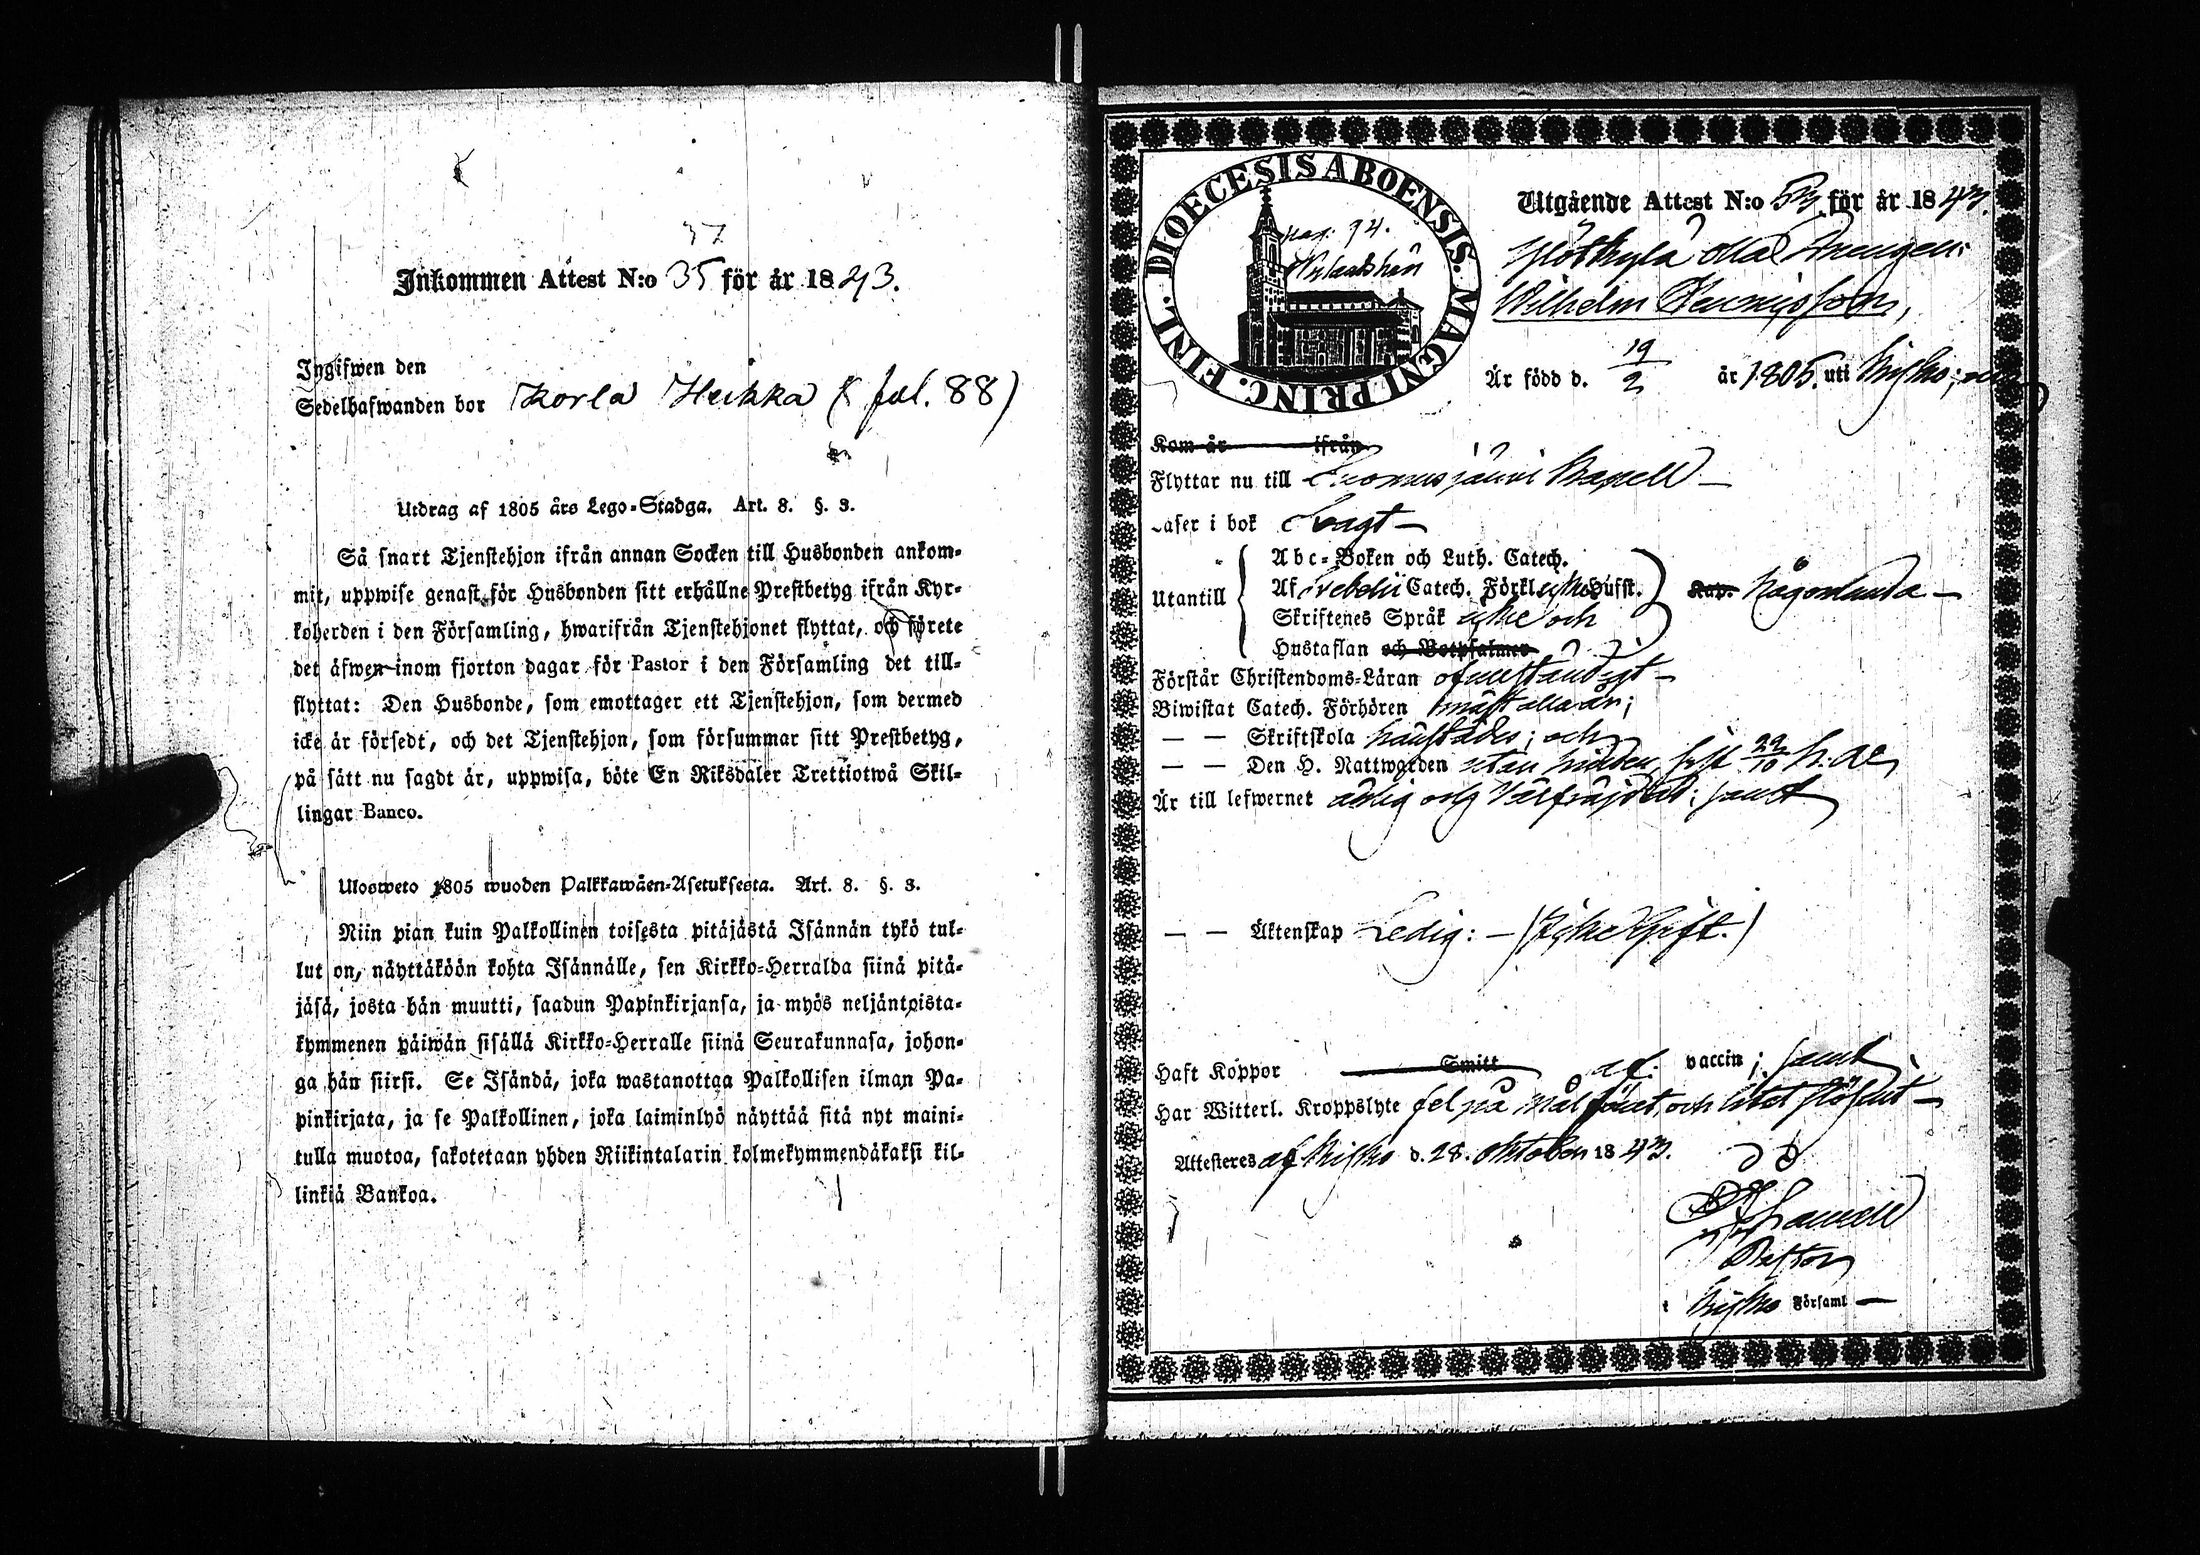 37
Inkommen Attest N:o 35 för år 1843.
Ingifwen den
Sedelhafwanden bor Korla Heikka (fol. 88)
Utdrag af 1805 års Lego-Stadga. Art. 8. §. 3.
Så snart Tjenstehjon ifrån annan Socken till Husbonden ankom-
mit, uppwise genast för Husbonden sitt erhållne Prestbetyg ifrån Kyr-
koherden i den Församling, hwarifrån Tjenstehjonet flyttat, och förete
det äfwen inom fjorton dagar för Pastor i den Församling det till-
flyttat: Den Husbonde, som emottager ett Tjenstehjon, som dermed
icke är försedt, och det Tjenstehjon, som försummar sitt Prestbetyg,
på sätt nu sagdt är, uppwisa, böte En Riksdaler Trettiotwå Skil-
lingar Banco.
Ulosweto 1805 wuoden Palkkawäen-Asetuksesta. Art. 8. §. 3.
Niin pian kuin Palkollinen toisesta pitäjästä Isännän tykö tul-
lut on, näyttäköön kohta Isännälle, sen Kirkko-Herralda siinä pitä-
jäsä, josta hän muutti, saadun Papinkirjansa, ja myös neljäntoista-
kymmenen päiwän sisällä Kirkko-Herralle siinä Seurakunnasa, johon-
ga hän siirsi. Se Isändä, joka wastanottaa Palkollisen ilman Pa-
pinkirjata, ja se Palkollinen, joka laiminlyö näyttää sitä nyt maini-
tulla muotoa, sakotetaan yhden Riikintalarin kolmekymmendäkaksi kil-
linkiä Bankoa.
FINL. DIOECESIS ABOENSIS. MAGNI PRINC.
pag. 94.
Utgående Attest N:o 53 för år 1843.
Drengen
Wilhelm Henricsson,
Är född d. 19/2 år 1805. uti Kisko;
Kom år ifrån
Flyttar nu till Suomusjärvi Kapell
Läser i bok Svagt
Utantill
Abc-Boken och Luth. Catech.
Af Svebelii Catech. Förkl icke Hufst.
Skriftenes Språk icke och
Hustaflan och Botpsalmer
Kap. någorlunda
Förstår Christendoms-Läran ofullständigt
Biwistat Catech. Förhören mäst alla år;
— — Skriftskola och
— — Den H. Nattwarden utan hinder, sist 22/10
Är till lefwernet ärlig och välfräjdad; samt
— — Äktenskap Ledig: — (Icke Gift.)
Haft Koppor Smitt af vaccin; samt
Har Witterl. Kroppslyte fel på målföret, och
Attesteres af Kisko d. 28. Oktober 1843.
Pastor
i Kisko Församl